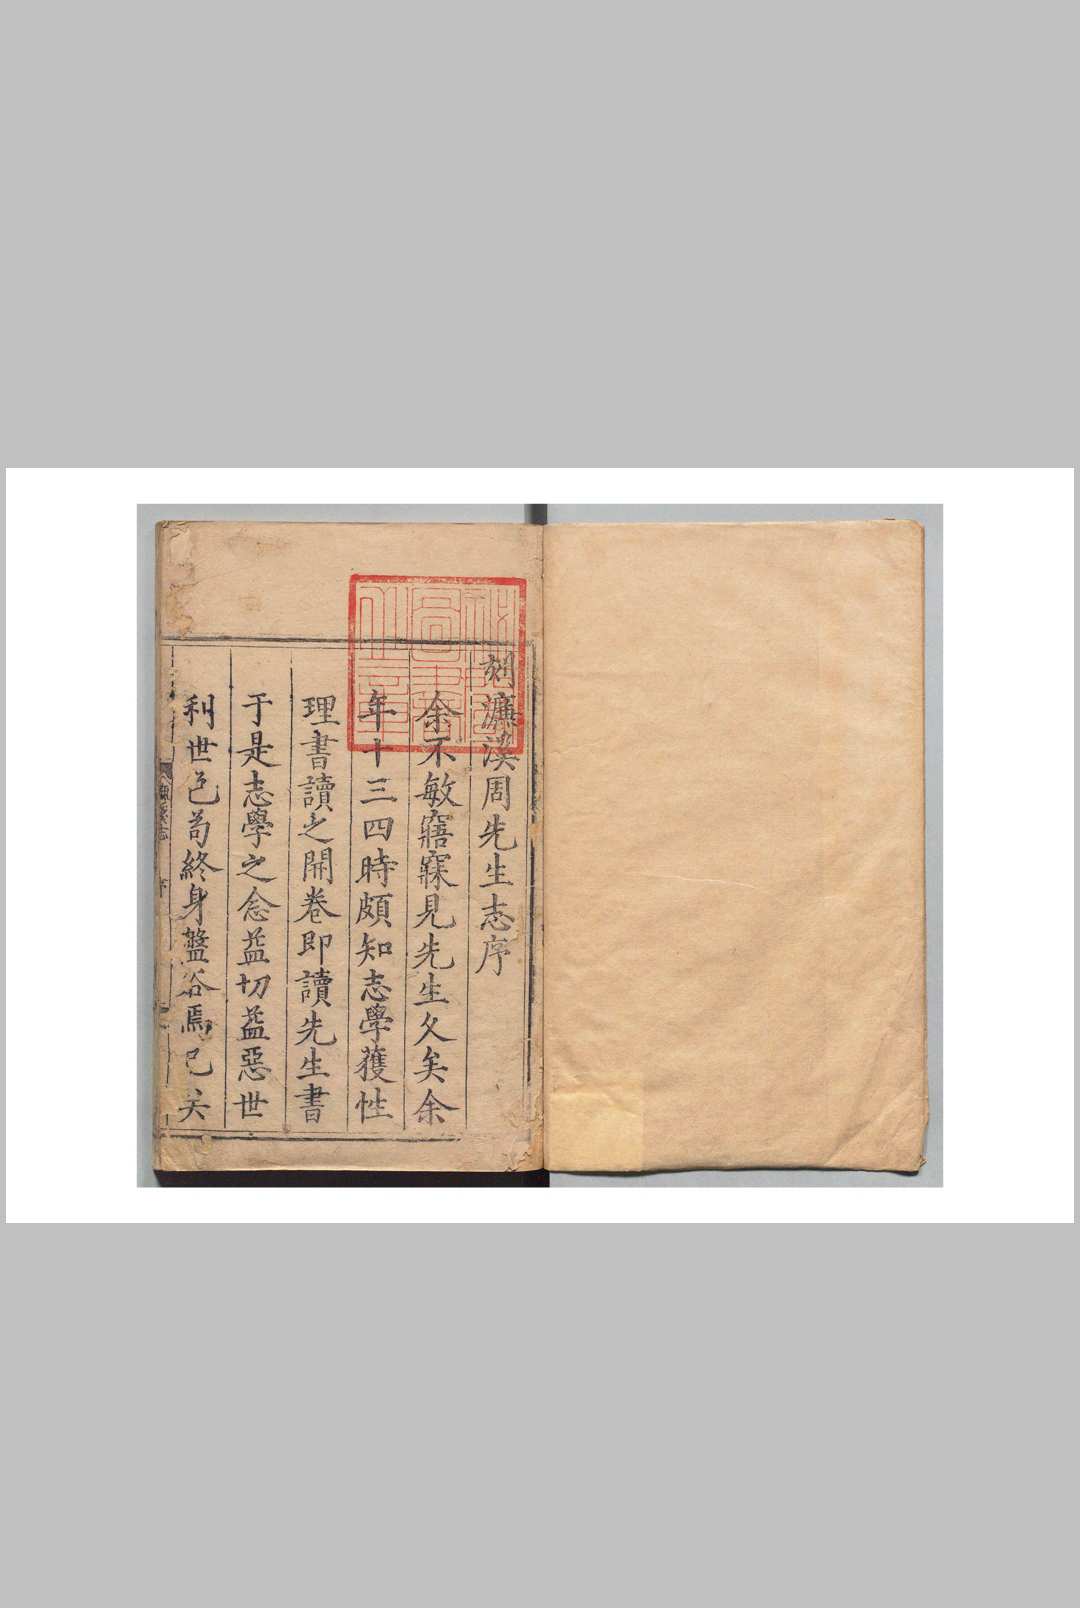 刻濂溪周先生志序
余不敏寤寐見先生久矣余
年十三四時頗知志學獲性
理書讀之開卷即讀先生書
于是志學之念益切益惡世
利世色苟終身盤谷焉已矣